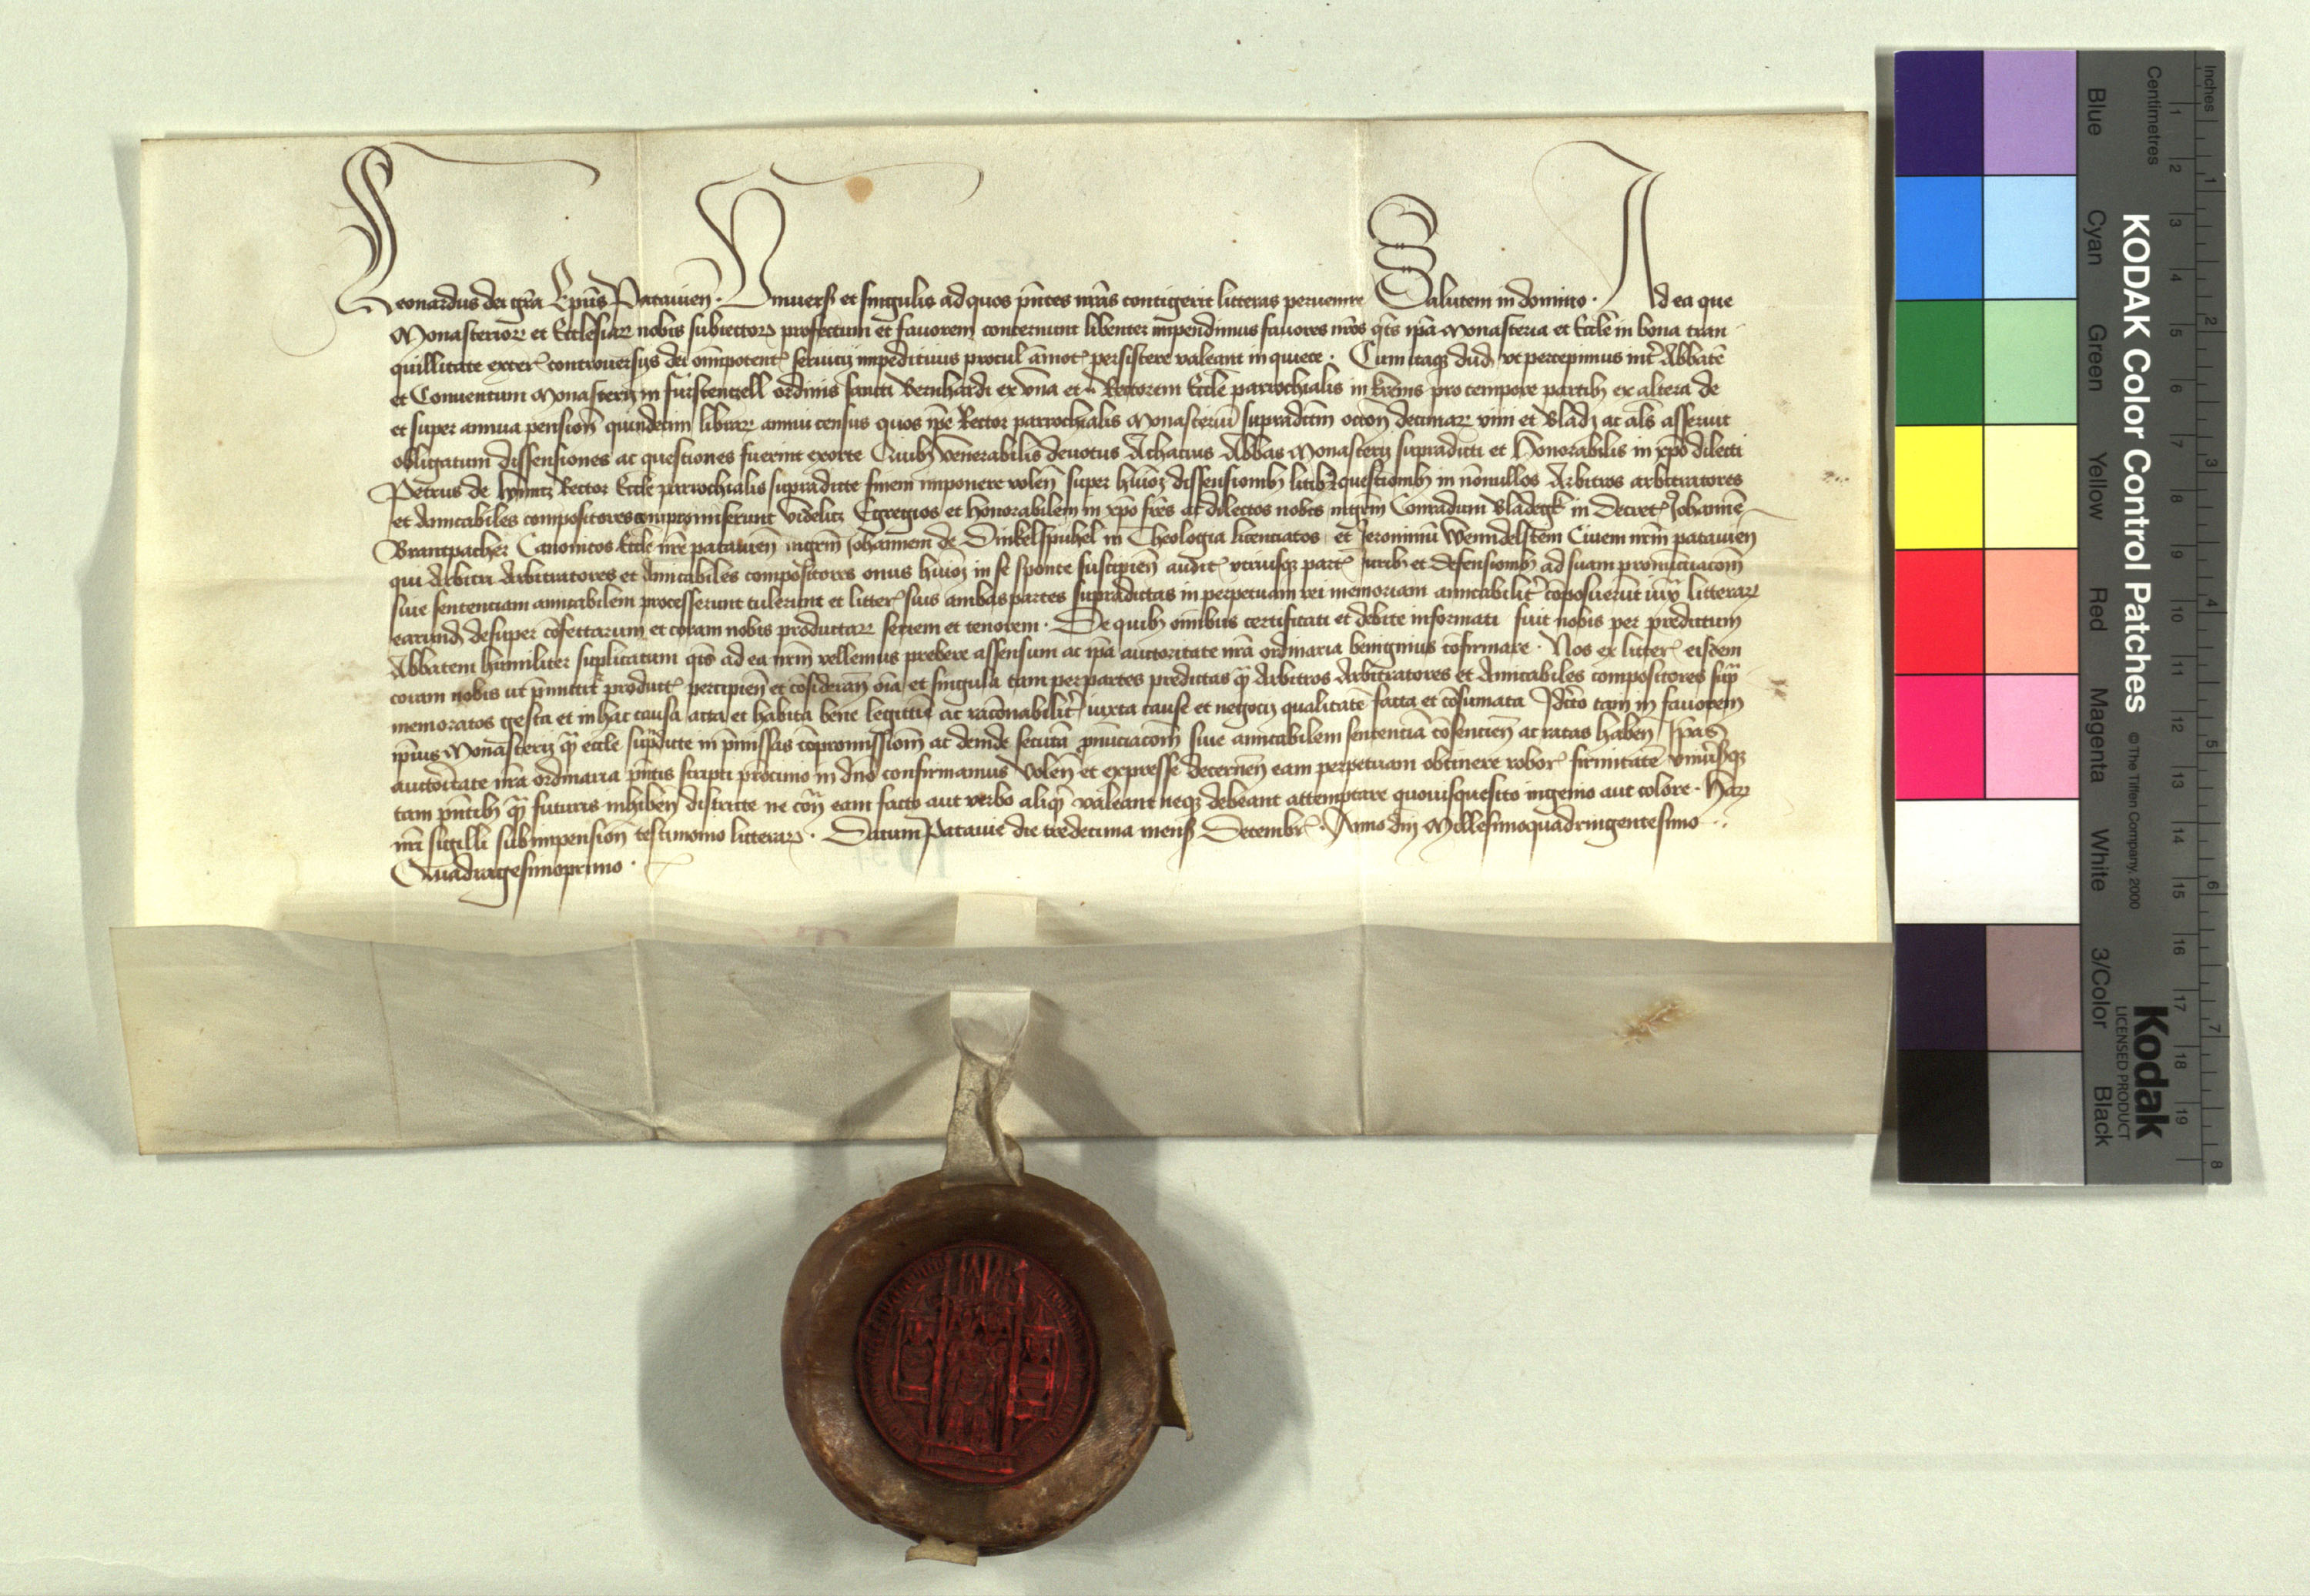 Leonardus dei gr̄a Ep̄us Patauieñ. Vniuersis et singulis ad quos p̄ntes nr̄as contigerit litteras peruenire Salutem in domino. Ad ea que
Monasteriorꝝ et Ecclesiarꝝ nobis subiectorꝝ profectum et fauorem concernunt libenter impendimus fauores nr̄os q̄ts ip̄a Monasteria et Eccl̄e in bona tran
quillitate exterꝭ controuersijs dei om̄ipotentꝭ seruicij impeditiuis procul am̄otꝭ persistere valeant in quiete. Cum itaqꝫ dud̄ vt percepimus int̄ Abbatē
et Conuentum Monasterij in furstenczell ordinis sancti Bernhardi ex vna et Rectorem Eccl̄e parrochialis in krems pro tempore partibꝫ ex altera de
et super annua pensioñ quindecim librarꝝ annui census quos ip̄e Rector parrochialis Monasteriū supradictm̄ occoñ decimarꝝ vini et bladi ac al̄s asseruit
obligatum dissensiones ac questiones fuerint exorte Quibꝫ venerabilis deuotus Achacius Abbas Monasterij supradicti et Honorabilis in xp̄o dilecti
Petrus de Rector Eccl̄e parrochialis supradicte finem imponere voleñ super huiꝰmoꝫ dissensionibꝫ litibꝫ questionibꝫ in nōnullos Arbitros arbitratores
et Amicabiles compositores compromiserunt videlicꝫ Egregios et honorabilem in xp̄o fr̄es ac dilectos nobis mgr̄m Conradum Bladegk in Decretꝭ Johannē
Brantpacher Canonicos Eccl̄e nr̄e patauieñ mgr̄m Johannem de Dinkelspuhel in Theologia licenciatos et Jeronimū Wenndelstem Ciuem nr̄m patauien
qui Arbitri Arbitratores et Amicabiles compositores onus huiꝰmoꝫ in se sponte suscipieñ auditꝭ vtriusqꝫ partꝭ Juribꝫ et defensionibꝫ ad suam pronūciacōm
siue sentenciam amicabilem processerunt tulerunt et litterꝭ suis ambas partes supradictas in perpetuam rei memoriam amicabilit̄ cōposuerūt iux̄ litterarꝝ
earund̄ desuper cōfectarum et coram nobis productarꝝ seriem et tenorem. De quibꝫ om̄ibus certificati et debite informati fuit nobis per predictum
Abbatem humiliter suplicatum q̄ts ad ea nr̄m vellemus prebere assensum ac ip̄a auctoritate nr̄a ordinaria benignius cōfirmare. Nos ex litterꝭ eisdem
coram nobis ut p̄mittitꝭ productꝭ percipieñ et cōsiderañ oīa et singula tam per partes predictas qꝫ Arbitros Arbitratores et Amicabiles compositores sup̄
memoratos gesta et in hac causa acta et habita bene legittīe ac racōnabilit̄ iuxta cause et negocij qualitatē facta et cōsumata Idc̄o tam in fauorem
ip̄ius Monasterij qꝫ eccl̄e sup̄dicte in p̄missas cōpromissiom̄ ac deinde secutā ꝓnūciacōm siue amicabilem sentenciā cōsencieñ ac ratas habeñ Ip̄as
auctoritate nr̄a ordinaria p̄ntis scripti procinio in dn̄o confirmamus Voleñ et expresse decerneñ eam perpetuam obtinere roborꝭ firmitatē vniūsisqꝫ
tam p̄ntibꝫ qꝫ futuris inhibeñ districte ne cōn̄ eam facto aut verbo aliqꝫ valeant neqꝫ debeant attemptare quouisquesito ingenio aut colore. Harꝝ
nr̄i sigilli subimpensioñ testimonio litterarꝝ. Datum Patauie die tredecima mensꝭ Decembrꝭ. Anno dn̄i Millesimoquadringentesimo
Quadragesimoprimo.
KODAK Color Control Patches
© The Tiffen Company, 2000
Kodak
LICENSED PRODUCT
Blue
Cyan
Green
Yellow
Red
Magenta
White
3/Color
Black
Centimetres
1 2 3 4 5 6 7 8 9 10 11 12 13 14 15 16 17 18 19
Inches
1 2 3 4 5 6 7 8